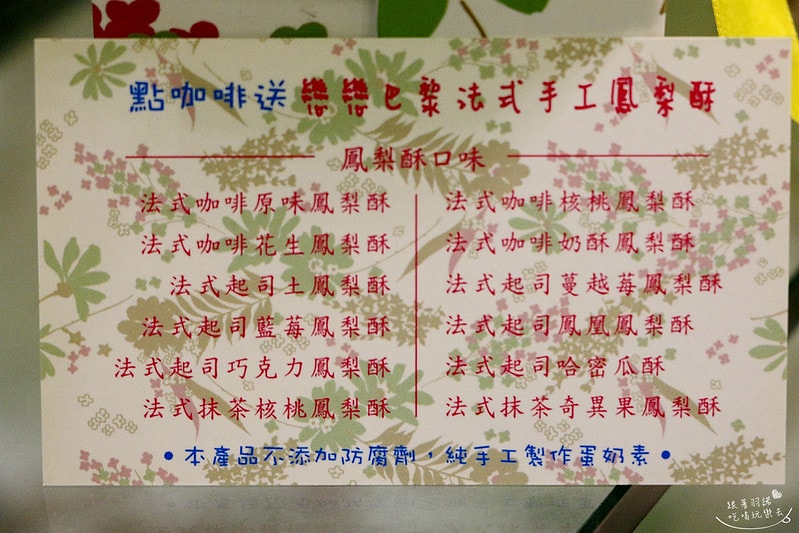 點咖啡送 戀戀巴黎法式手工鳳梨酥
鳳梨酥口味
法式咖啡原味鳳梨酥
法式咖啡花生鳳梨酥
法式起司土鳳梨酥
法式起司藍莓鳳梨酥
法式起司巧克力鳳梨酥
法式抹茶核桃鳳梨酥
法式咖啡核桃鳳梨酥
法式咖啡奶酥鳳梨酥
法式起司蔓越莓鳳梨酥
法式起司鳳凰鳳梨酥
法式起司哈密瓜酥
法式抹茶奇異果鳳梨酥
•本產品不添加防腐劑，純手工製作蛋奶素•
跟著羽諾
吃喝玩樂去